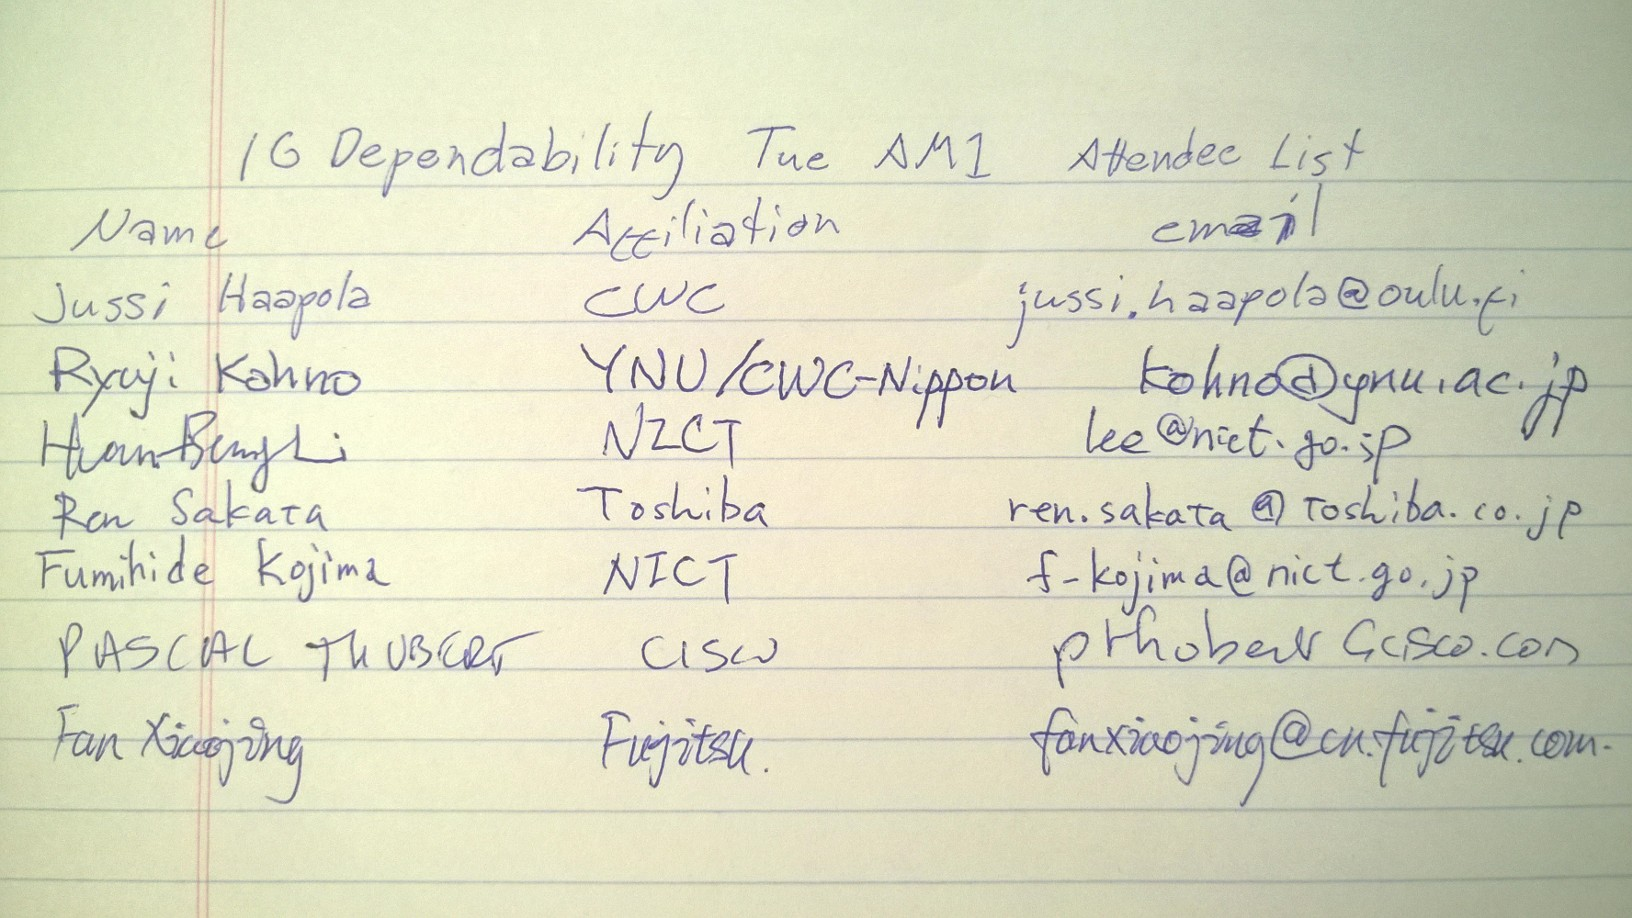 IG Dependability Tue AM1 Attendee List
Name Affiliation email
Jussi Haapola CWC jussi.haapola@oulu.fi
Ryuji Kohno YNU/CWC-Nippon kohno@ynu.ac.jp
Huan-Bang Li NICT lee@nict.go.jp
Ren Sakata Toshiba ren.sakata@toshiba.co.jp
Fumihide Kojima NICT f-kojima@nict.go.jp
PASCAL THUBERT CISCO
Fan Xiaojing Fujitsu. fanxiaojing@cn.fujitsu.com.